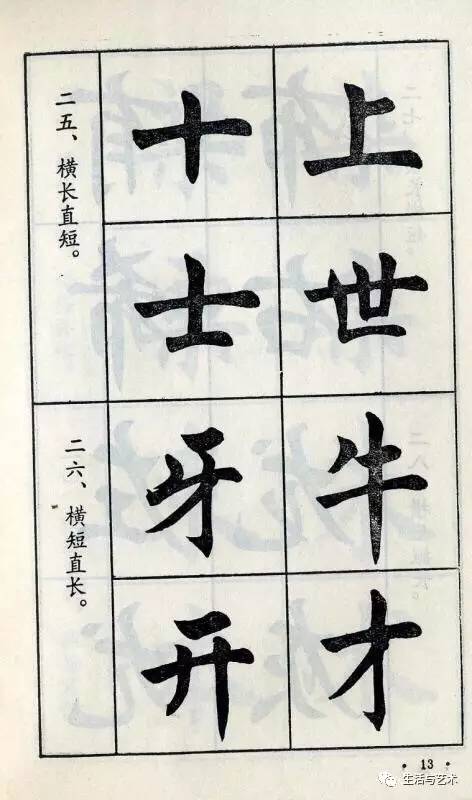 二五、横长直短。
上
十
世
士
二六、横短直长。
牛
牙
才
开
· 13 ·
生活与艺术